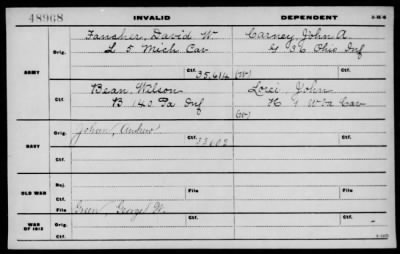 48968 INVALID DEPENDENT
Fansher, David W. Carney, John A.
Orig. L 5 Mich Cav G 36 Ohio Inf
ARMY Ctf. 35,614 (W)
Bean, Wilson Lorei, John
Ctf. B 140 Pa Inf K 1 W Va Cav
(W)
Orig. Johan, Andrew Ctf.
NAVY 33602
Ctf.
Rej.
OLD WAR File File
Ctf.
WAR OF 1812 Orig. Green, George W. Ctf. Ctf.
Ctf.